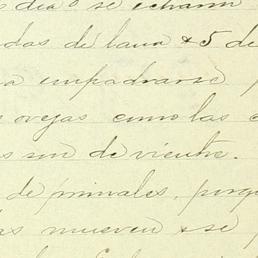 dia se echaron
das de lana & 5 de
empadrarse
ovejas como las
son de vientre.
de minales, porq
mueren & se